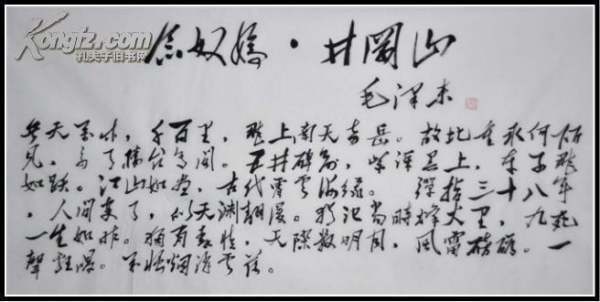 Kongfz.com
孔夫子旧书网
念奴嬌·井岡山
毛泽东
参天万木，千百里，飛上南天奇岳。故地重来何所
見，多了楼台亭阁。五井碑前，黄洋界上，车子飛
如跃。江山如画，古代曾雲海绿。弹指三十八年
，人间变了，似天渊翻覆。犹记当時烽火里，九死
一生如昨。独有豪情，天際悬明月，風雷磅礴。一
聲鸡唱。万怪烟消雲落。